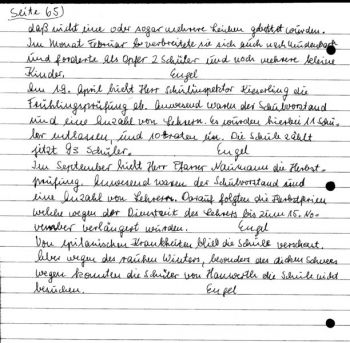 Seite 65)
daß nicht eine oder sogar mehrere Leichen gebettet würden.
Im Monat Februar verbreitete sie sich auch nach
und forderte als Opfer 2 Schüler und noch mehrere kleine
Kinder. Engel
Am 19. April hielt Herr Schulinspektor die
Frühlingsprüfung ab. Anwesend waren der Schulvorstand
und eine Anzahl von Lehrern. Es wurden hierbei 11 Schü-
ler entlassen, und 10 traten ein. Die Schule zählt
jetzt 93 Schüler. Engel
Im September hielt Herr Pfarrer Naumann die Herbst-
prüfung. Anwesend waren der Schulvorstand und
eine Anzahl von Lehrern. Darauf folgten die Herbstferien
welche wegen der Dienstzeit des Lehrers bis zum 15. No-
vember verlängert wurden. Engel
Von epidemischen Krankheiten blieb die Schule verschont.
Aber wegen des rauhen Winters, besonders des dichten Schnees
wegen konnten die Schüler von die Schule nicht
besuchen. Engel